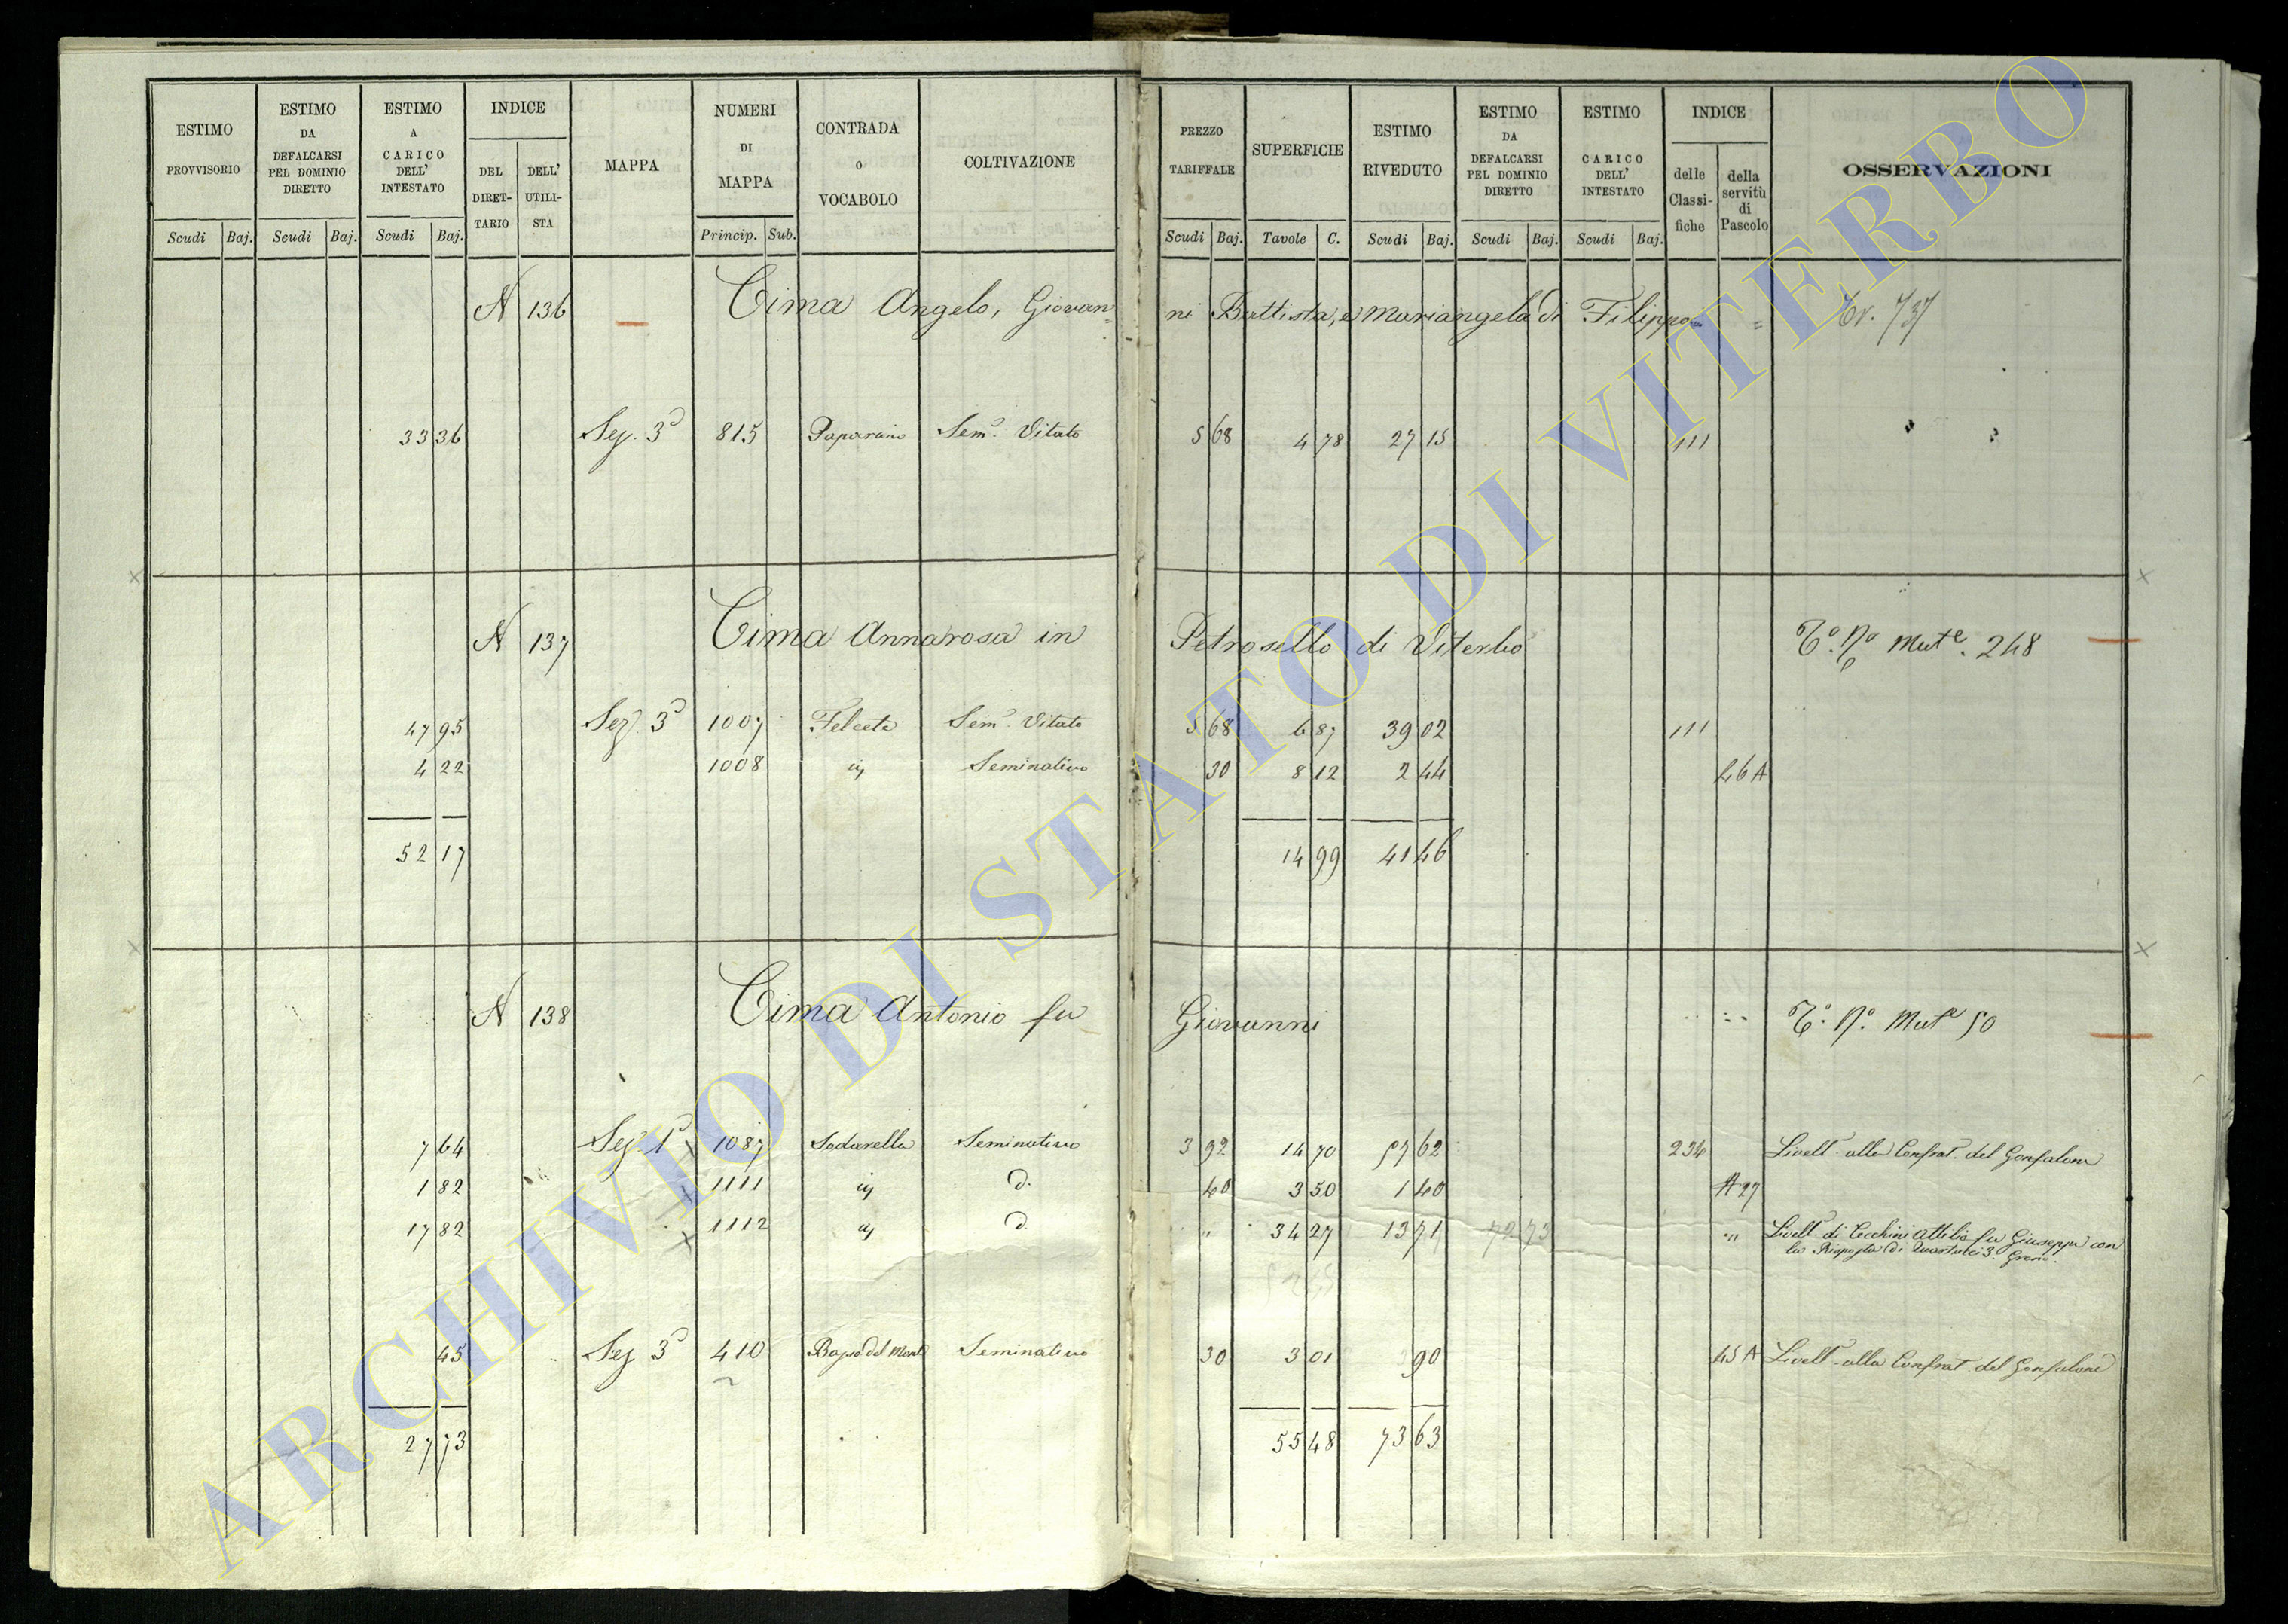 ESTIMO PROVVISORIO Scudi Baj.
ESTIMO DA DEFALCARSI PEL DOMINIO DIRETTO Scudi Baj.
ESTIMO A CARICO DELL' INTESTATO Scudi Baj.
INDICE DEL DIRET- TARIO DELL' UTILI- STA
MAPPA
NUMERI DI MAPPA Princip. Sub.
CONTRADA o VOCABOLO
COLTIVAZIONE
PREZZO TARIFFALE Scudi Baj.
SUPERFICIE Tavole C.
ESTIMO RIVEDUTO Scudi Baj.
ESTIMO DA DEFALCARSI PEL DOMINIO DIRETTO Scudi Baj.
ESTIMO CARICO DELL' INTESTATO Scudi Baj.
INDICE delle Classi- fiche della servitù di Pascolo
OSSERVAZIONI
N 136 Cima Angelo, Giovan= ni Battista, e Mariangela di Filippo = 737
33 36 Sez. 3a 815 Paparano Semo. Vitato 5 68 4 78 27 15 111
N 137 Cima Annarosa in Petrosello di Viterbo To. No Mute. 248
47 95 Sez 3a 1007 Felceta Semo. Vitato 5 68 6 87 39 02 111
4 22 1008 Seminativo 30 8 12 2 44 46 A
52 17 14 99 41 46
N 138 Cima Antonio fu Giovanni To. No. Mute 50
7 64 Sez 1a 1087 Sodarella Seminativo 3 92 14 70 57 62 234 Livello alla Confrat. del Gonfalone
1 82 1111 d. 40 3 50 1 40 A 27
17 82 1112 d. " 34 27 13 71 72 73 " Livello di Cecchini Attilio fu Giuseppe con
la Risposta di Quartucci 3 Grano.
45 Sez 3a 410 Seminativo 30 3 01 90 45 A Livello alla Confrat del Gonfalone
27 73 55 48 73 63
ARCHIVIO DI STATO DI VITERBO